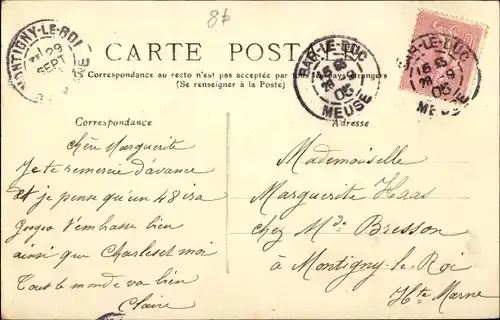 8
MONTIGNY-LE-ROI
29
SEPT
CARTE POSTALE
Correspondance au recto n'est pas acceptée par tous les pays étrangers
(Se renseigner à la Poste)
BAR-LE-DUC
28 9
05
MEUSE
BAR-LE-DUC
28 9
05
MEUSE
Correspondance
Chère Marguerite
Je te remercie d'avance
Et je pense qu'un 48 ira
t'embrasse bien
ainsi que Charles et moi
Tous le monde va bien
Claire
Adresse
Mademoiselle
Marguerite Haas
chez Mde Bresson
à Montigny-le-Roi
Hte Marne